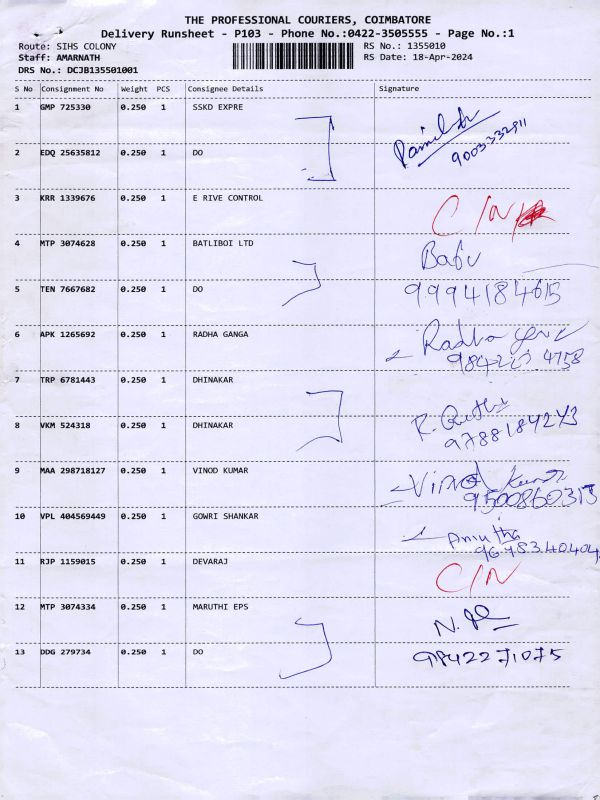 THE PROFESSIONAL COURIERS, COIMBATORE
Delivery Runsheet - P103 - Phone No.:0422-3505555 - Page No.:1
Route: SIHS COLONY RS No.: 1355010
Staff: AMARNATH RS Date: 18-Apr-2024
DRS No.: DCJB135501001
S No Consignment No Weight PCS Consignee Details Signature
1 GMP 725330 0.250 1 SSKD EXPRE
9003332911
2 EDQ 25635812 0.250 1 DO
3 KRR 1339676 0.250 1 E RIVE CONTROL C/N
4 MTP 3074628 0.250 1 BATLIBOI LTD Babu
5 TEN 7667682 0.250 1 DO 9994184615
6 APK 1265692 0.250 1 RADHA GANGA Radha
4758
7 TRP 6781443 0.250 1 DHINAKAR
8 VKM 524318 0.250 1 DHINAKAR R.
9788184243
9 MAA 298718127 0.250 1 VINOD KUMAR Vinod Kumar
9500860313
10 VPL 404569449 0.250 1 GOWRI SHANKAR Amutha
9678340404
11 RJP 1159015 0.250 1 DEVARAJ C/N
12 MTP 3074334 0.250 1 MARUTHI EPS N.
13 DDG 279734 0.250 1 DO 9842271075